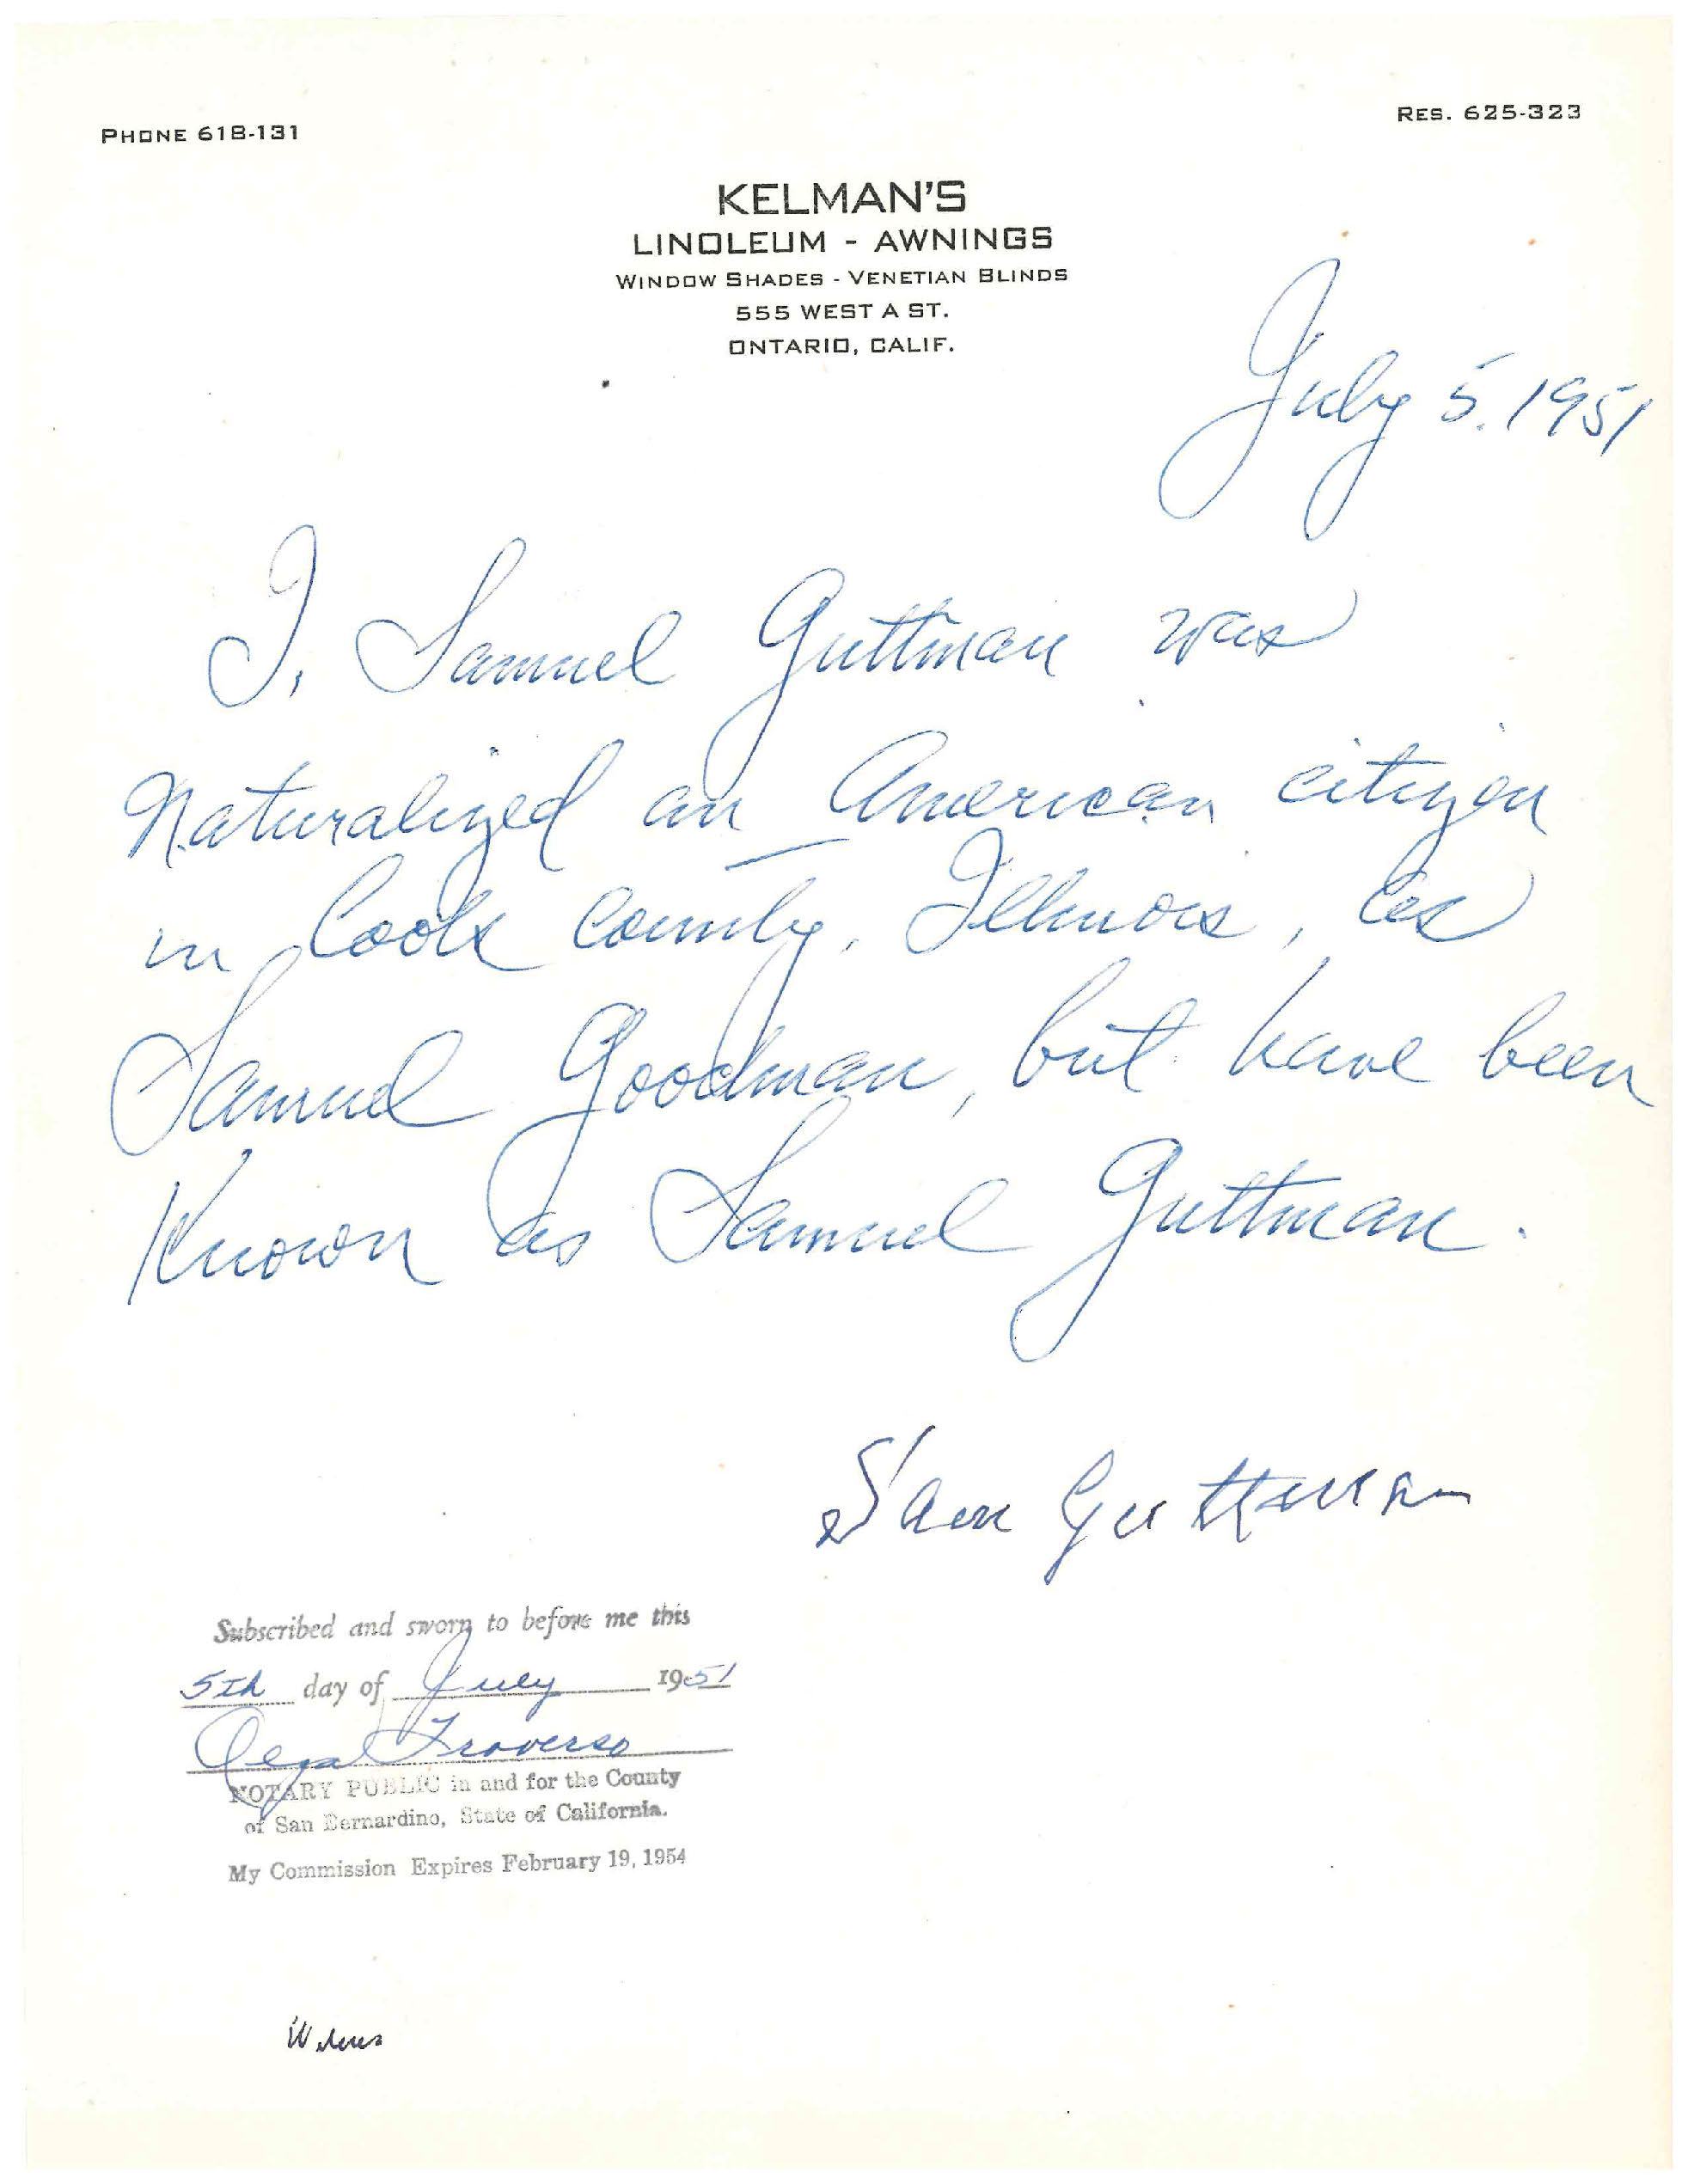 PHONE 618-131
RES. 625-323
KELMAN'S
LINOLEUM - AWNINGS
WINDOW SHADES - VENETIAN BLINDS
555 WEST A ST.
ONTARIO, CALIF.
July 5. 1951
I, Samuel Guttman was
Naturalized an American citizen
in Cook County, Illinois, as
Samuel Goodman, but have been
Known as Samuel Guttman.
Sam Guttman
Subscribed and sworn to before me this
5th day of July 1951
Olga Traverso
NOTARY PUBLIC in and for the County
of San Bernardino, State of California.
My Commission Expires February 19, 1954